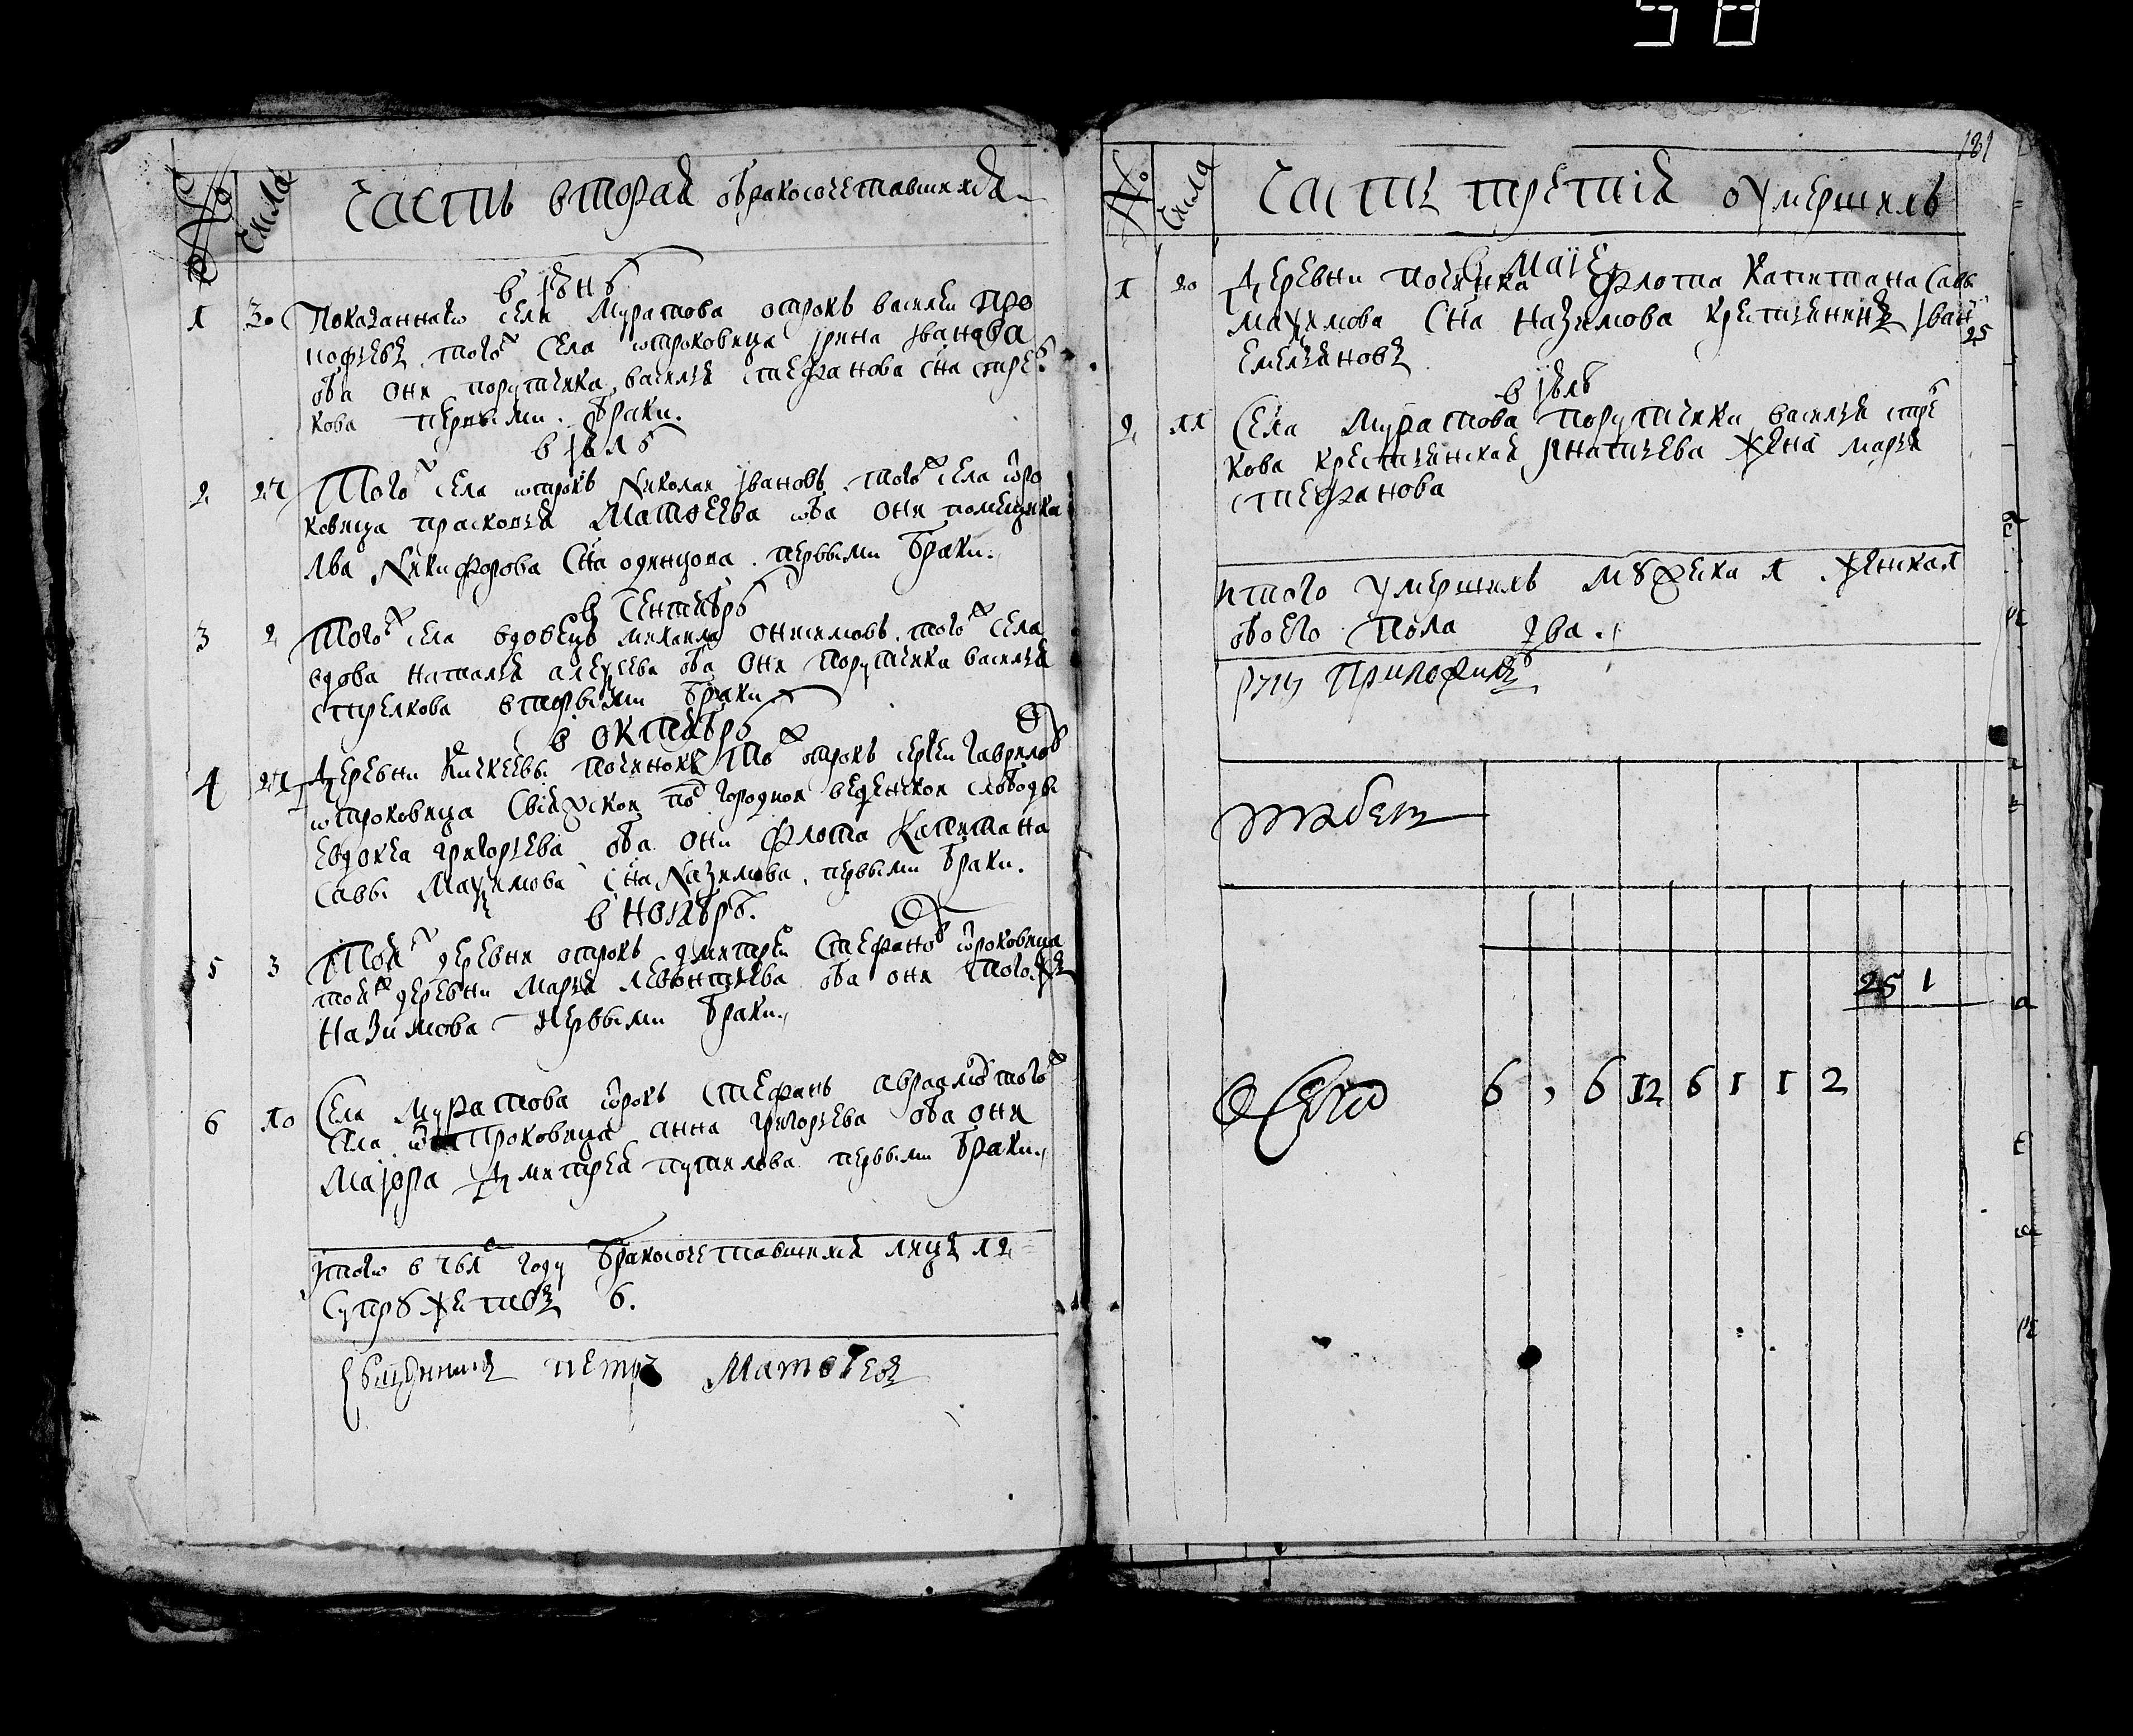 58
№ Числа Часть вторая о бракосочетавшихся
в іюнѣ
1 30 Показаннаго села Муратова отрокъ василеи про
кофьевъ того села отроковица ирина иванова
оба они порутчика василья стефанова сна стрѣ
кова первыми браки.
в іюлѣ
2 27 Того ж села отрокъ Николаи ивановъ того ж села отро
ковица прасковья Матѳеева оба они помещика
Лва Никифорова Сна одинцова первыми браки.
в сентябрѣ
3 2 Того ж села вдовецъ михаила онисимовъ того ж села
вдова наталья алеѯеева оба они порутчика василья
стрелкова вторыми браки
в октябрѣ
4 27 Деревни починокъ то ж отрокъ сергеи гаврилов
отроковица Свіяжской по городной веденской слободы
евдокея григорьева оба они флота капитана
Саввы Маѯимова сна Назимова первыми браки.
в ноябрѣ.
5 3 Тои ж деревни отрокъ дмитреи Стефанов отроковица
тои ж деревни Марья Левонтьева оба они того ж
Назимова первыми браки.
6 10 Села Муратова отрокъ Стефанъ авраамов того ж
села отроковица анна григорьева оба они
Маіора Дмитрея путилова первыми браки.
итого в году бракосочетавшихся лицъ 12
Супружествъ 6.
Священникъ петръ Матѳѣевъ
181
№ Числа Часть третія о умершихъ
в Маіе
1 20 Деревни починка флота капитана Саввы
маѯимова Сна назимова крестьянинъ иван
емельяновъ 25
в іюлѣ
2 11 Села Муратова порутчика василья стрѣ
кова крестьянская игнатьева жена марья
стефанова
итого умершихъ мужеска 1 женска 1
обоего пола два.
руку приложилъ
табель
25 1
6 , 6 12 6 1 1 2